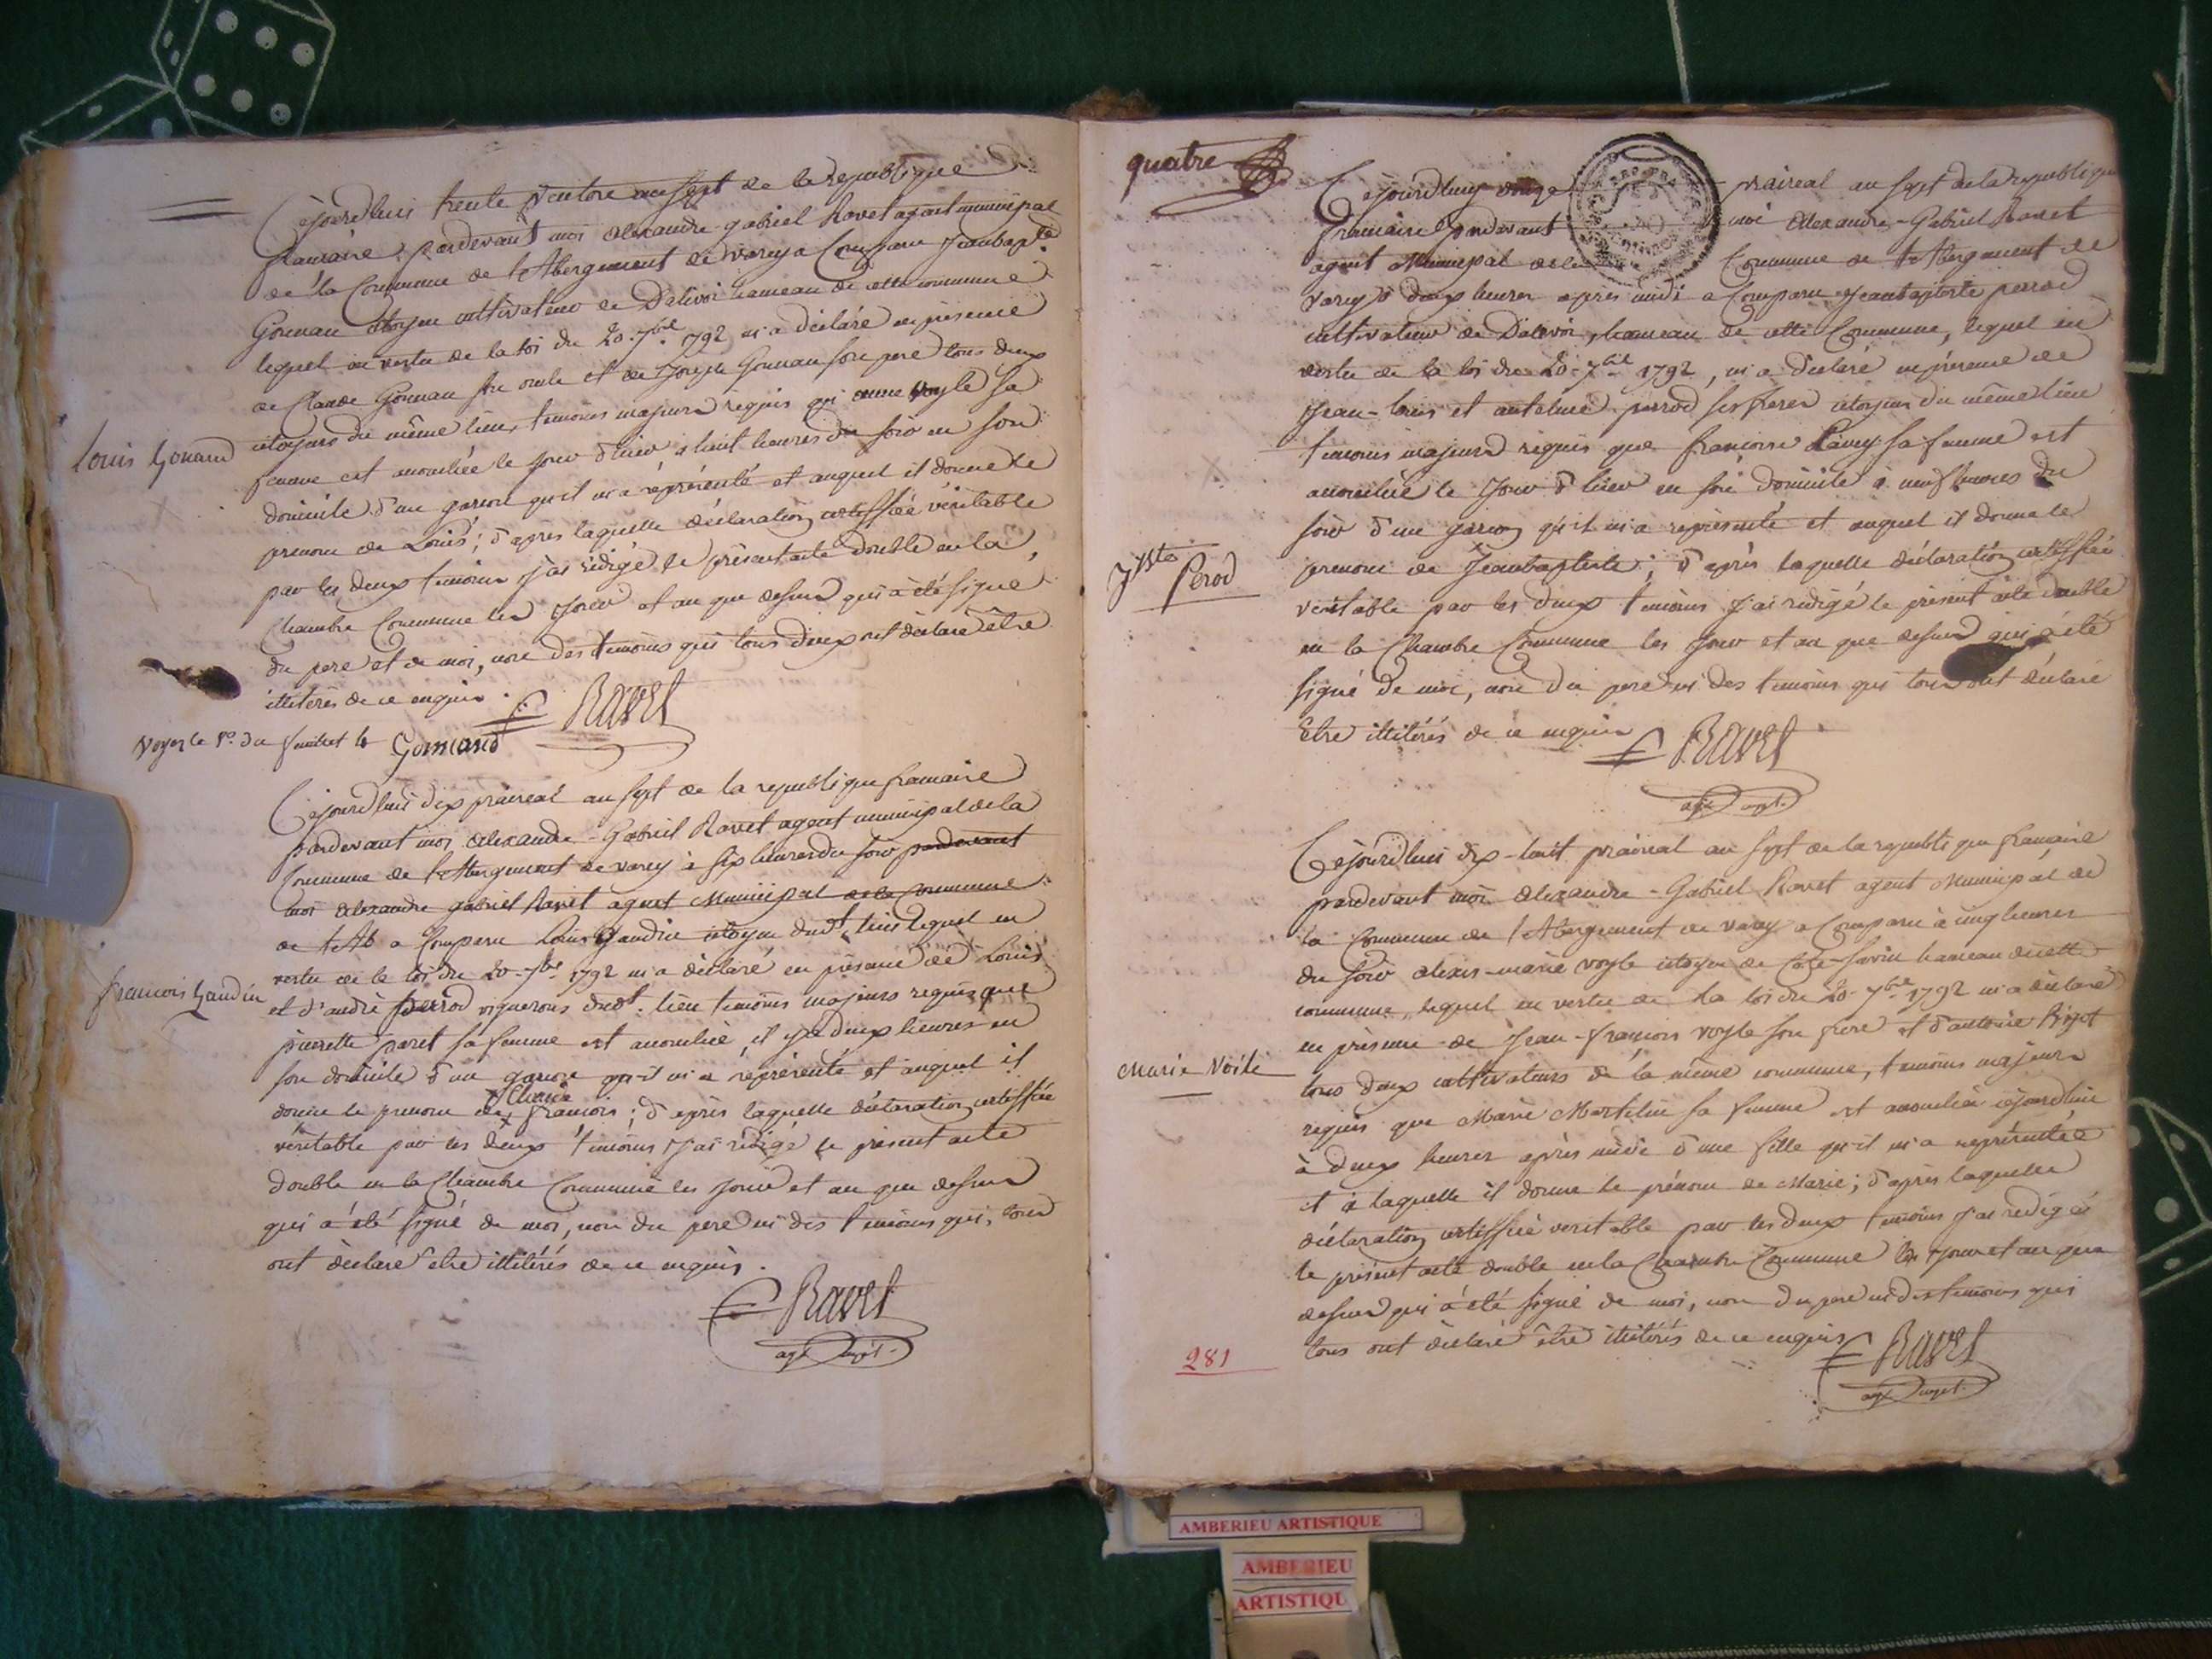 Cejourdhui trente ventose an sept de la republique
francaise pardevant moi alexandre gabriel Ravet agent municipal
de la Commune de l'Abergement de varey a Comparu Jeanbapte
Gonnan citoyen cultivateur de Dalivoi hameau de cette commune
lequel en vertu de la loi du 20. 7bre 1792 m'a déclaré en présence
de Claude Gonnan son oncle et de Joseph Gonnan son pere tous deux
citoyens du même lieu, temoins majeurs requis que anne voyle sa
femme est accouchée le jour d'hier a huit heures du soir en son
domicile d'un garcon qu'il m'a représenté et auquel il donne le
prenom de Louis; d'après laquelle déclaration certiffiée véritable
par les deux temoins j'ai rédigé le présent acte double en la
Chambre Commune les Jour et an que dessus qui a été signé
du pere et de moi, non des temoins qui tous deux ont déclaré être
illitérés de ce enquis.
Louis Gonand
Ravet
Voyez le Ro. du feuillet 4
Gonnand
Cejourdhui dix prairéal an sept de la republique francaise
pardevant moi alexandre-Gabriel Ravet agent municipal de la
Commune de l'Abergement de varey à six heures du soir pardevant
moi alexandre gabriel Ravet agent Municipal de la Commune
de l'Ab a comparu Louis Gaudin citoyen dudt. lieu lequel en
vertu de la loi du 20-7bre 1792 m'a déclaré en présence de Louis
et d'andré perrod vignerons dudt. lieu temoins majeurs requis que
pierrette paret sa femme est accouchée il y a deux heures en
son domicile d'un garcon qu'il m'a représenté et auquel il
donne le prenom de françois; d'après laquelle déclaration certiffiée
véritable par les deux temoins j'ai rédigé le présent acte
double en la Chambre Commune les jour et an que dessus
qui a été signé de moi, non du pere ni des temoins qui, tous
ont déclaré être illitérés de ce enquis.
francois Gaudin
Ravet
agt mpl.
quatre
Cejourdhuy onze prairéal an sept de la republique
francaise pardevant moi Alexandre-Gabriel Ravet
agent Municipal de la Commune de l'Abergement de
Varey à deux heures après midi a Comparu Jeanbaptiste perrod
cultivateur de Dalivoi, hameau de cette Commune, lequel en
vertu de la loi du 20-7bre 1792, m'a déclaré en présence de
Jean-Louis et antelme perrod ses freres citoyens du même lieu
temoins majeurs requis que françoise Ravey sa femme est
accouchée le Jour d'hier en son domicile à neuf heures du
soir d'un garcon qu'il m'a représenté et auquel il donne le
prenom de Jeanbaptiste; d'après laquelle déclaration certiffiée
véritable par les deux temoins j'ai rédigé le présent acte double
en la Chambre Commune les Jour et an que dessus qui a été
signé de moi, non du pere ni des temoins qui tous ont déclaré
être illitérés de ce enquis
J Bte
Perod
Ravet
agt mpl.
Cejourdhui dix-huit prairéal an sept de la republique francaise
pardevant moi alexandre-Gabriel Ravet agent Municipal de
la Commune de l'Abergement de varey a Comparu à cinq heures
du soir alexis-marie voyle citoyen de Côte-Savin hameau de cette
commune, lequel en vertu de la loi du 20-7bre 1792 m'a déclaré
en présence de Jean-françois voyle son frere et d'antoine
tous deux cultivateurs de la même commune, temoins majeurs
requis que Marie Martelin sa femme est accouchée cejourdhui
à deux heures après midi d'une fille qu'il m'a représentée
et à laquelle il donne le prénom de Marie; d'après laquelle
déclaration certiffiée veritable par les deux temoins j'ai rédigé
le présent acte double en la Chambre Commune les Jour et an que
dessus qui a été signé de moi, non du pere ni des temoins qui
tous ont déclaré être illitérés de ce enquis
Marie Voile
Ravet
agt mpl.
281
AMBERIEU ARTISTIQUE
AMBERIEU
ARTISTIQU